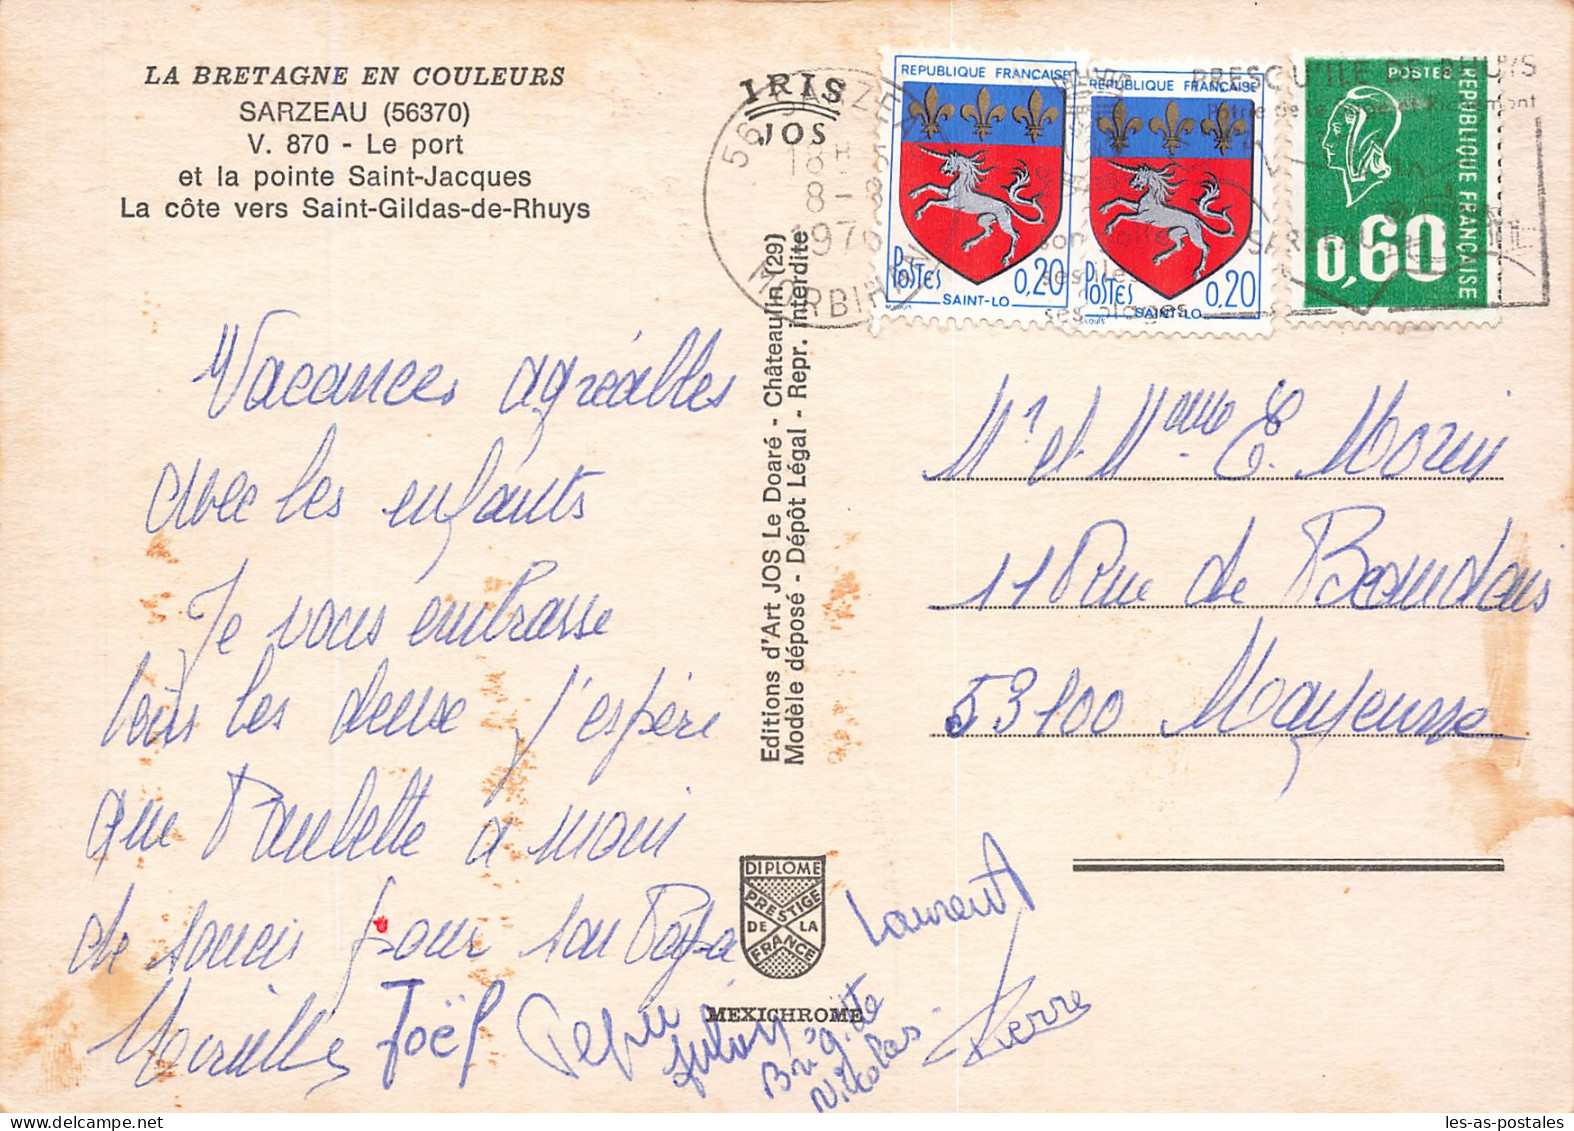 LA BRETAGNE EN COULEURS
SARZEAU (56370)
V. 870 - Le port
et la pointe Saint-Jacques
La côte vers Saint-Gildas-de-Rhuys
IRIS
JOS
56 SARZEAU
18 H
8 - 8
1976
MORBIHAN
REPUBLIQUE FRANÇAISE
POSTES
0,20
SAINT-LO
REPUBLIQUE FRANÇAISE
POSTES
0,20
SAINT-LO
POSTES
REPUBLIQUE FRANÇAISE
0,60
PRESQU'ILE DE RHUYS
son golfe
ses iles
ses plages
SARZEAU
Vacances agréables
avec les enfants
Je vous embrasse
tous les deux j'espère
que Paulette a moins
de soucis pour son Papa
Mireille Joël Pepé
Brigitte
Nicolas
Laurent
Pierre
Editions d'Art JOS Le Doaré - Châteaulin (29)
Modèle déposé - Dépôt Légal - Repr. interdite
DIPLOME
PRESTIGE
DE LA
FRANCE
MEXICHROME
Mr et Mme E. Morin
11 Rue de Beaudais
53100 Mayenne
les-as-postales